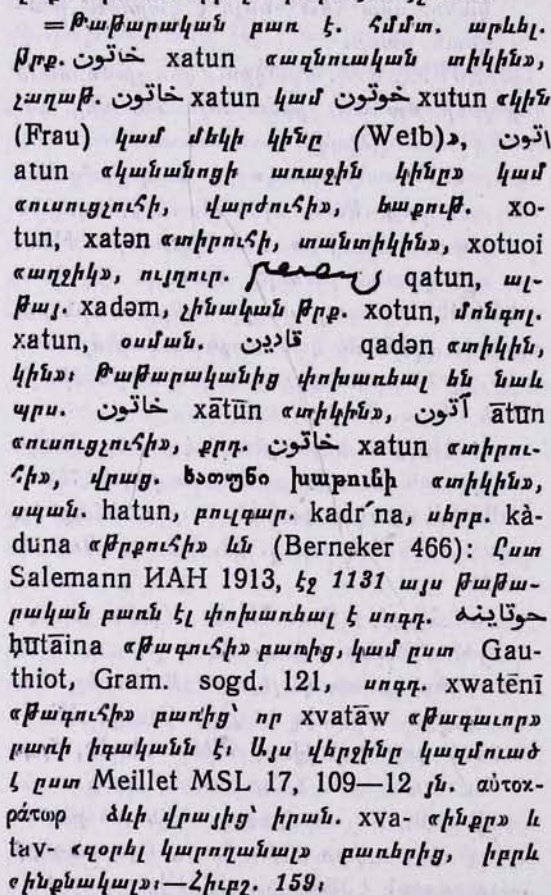 =Թաթարական բառ է. հմմտ. արևել.
թրք. خاتون xatun «ազնուական տիկին»,
չաղաթ. خاتون xatun կամ خوتون xutun «կին
(Frau) կամ մեկի կինը (Weib)», اتون
atun «կանանոցի առաջին կինը» կամ
«ուսուցչուհի, վարժուհի», եաքութ. xo-
tun, xatən «տիրուհի, տանտիկին», xotuoi
«աղջիկ», ույղուր. qatun, ալ-
թայ. xadəm, չինական թրք. xotun, մոնգոլ.
xatun, օսման. قادين qadən «տիկին,
կին»։ Թաթարականից փոխառեալ են նաև
պրս. خاتون xātūn «տիկին», آتون ātūn
«ուսուցչուհի», քրդ. خاتون xatun «տիրու-
հի», վրաց. ხათუნი խաթունի «տիկին»,
սպան. hatun, բուլգար. kadr´na, սերբ. kà-
duna «թրքուհի» ևն (Berneker 466)։ Ըստ
Salemann ИАН 1913, էջ 1131 այս թաթա-
րական բառն էլ փոխառեալ է սոգդ. حوتاينه
ḥutāina «թագուհի» բառից, կամ ըստ Gau-
thiot, Gram. sogd. 121, սոգդ. xwatēnī
«թագուհի» բառից՝ որ xvatāw «թագաւոր»
բառի իգականն է։ Այս վերջինը կազմուած
է ըստ Meillet MSL 17, 109—12 յն. αὐτοκ-
ράτωρ ձևի վրայից՝ իրան. xva- «ինքը» և
tav- «զօրել կարողանալ» բառերից, իբրև
«ինքնակալ»։—Հիւբշ. 159։